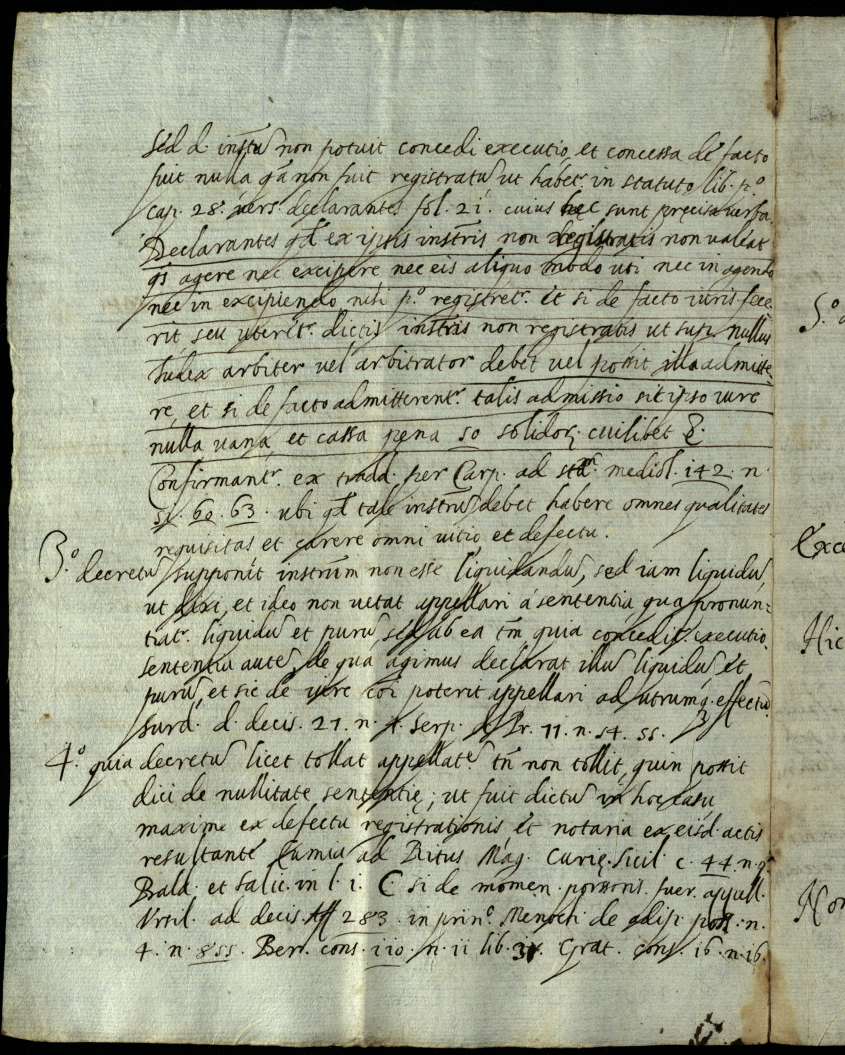 sed d. instrū non potuit concedi executio, et concessa de facto
fuit nulla q̄a non fuit registratū ut habet.r in statuto lib. p.o
cap. 28. vers. declarantes fol. 21. cuius hec sunt precisa verba
Declarantes qd̄ ex ipsis instrīs non registratis non valeat
q̄s agere nec excipere nec eis aliquo modo uti nec in agendo
nec in excipiendo nisi p.o registret.r et si de facto iuris fece
rit seu uteret.r dictis instrīs non registratis ut sup.a nullus
Iudex arbiter vel arbitrator debet vel possit illa admitte
re, et si de facto admitterent.r talis admissio sit ipso iure
nulla vana et cassa pena 50 solidor. cuilibet &.
Confirmant.r ex tradd. per Carp. ad stat. mediol. 142. n.
51. 60. 63. ubi qd̄ tale instrū debet habere omnes qualitates
requisitas et carere omni vitio et defectu.
3.o decretū supponit instrūm non esse liquidandū, sed iam liquidū,
ut dixi, et ideo non vetat appellari á sententia qua pronun=
tiat.r liquidū et purū, sed ab ea tn̄ quia concedit.r executio.
sententia autē, de qua agimus declarat illū liquidū et
purū, et sic de iure coī poterit appellari ad utrumq. effectū
Surd. d. decis. 21. n. 4. Serp. 11. n. 54. 55.
4.o quia decretū licet tollat appellat.e tn̄ non tollit, quin possit
dici de nullitate sententię; ut fuit dictū in hoc casu
maxime ex defectu registrationis et notaria ex eisd. actis
resultante Cumia ad Ritus Mag. Curię Sicil. c. 44. n. 9.
Bald. et Salic. in l. i. C si de momen. possions. fuer. appell.
Ursil. ad decis. Aff. 283. in prin.o Menoch. de adip. poss. n.
4. n. 855. Ber. cons. 110. n. 11 lib. Grat. cons. 16. n. 16.
5.o
Exce
Hic
Non